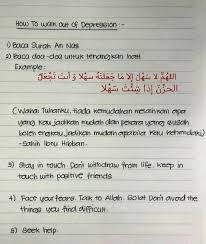 How To walk out of Depression :-
1) Baca Surah An Nas
2) Baca doa-doa untuk tenangkan hati
Example :
اللهم لا سهل إلا ما جعلته سهلا و أنت تجعل
الحزن إذا شئت سهلا
( Wahai Tuhanku, tiada kemudahan melainkan apa
yang Kau jadikan mudah dan perkara yang susah
boleh engkau jadikan mudah apabila Kau kehendaki)
- Sahih Ibnu Hibban.
3) Stay in touch. Don't withdraw from life. Keep in
touch with positive friends
4) Face your fears. Talk to Allah. Solat Don't avoid the
things you find difficult.
5) Seek help.